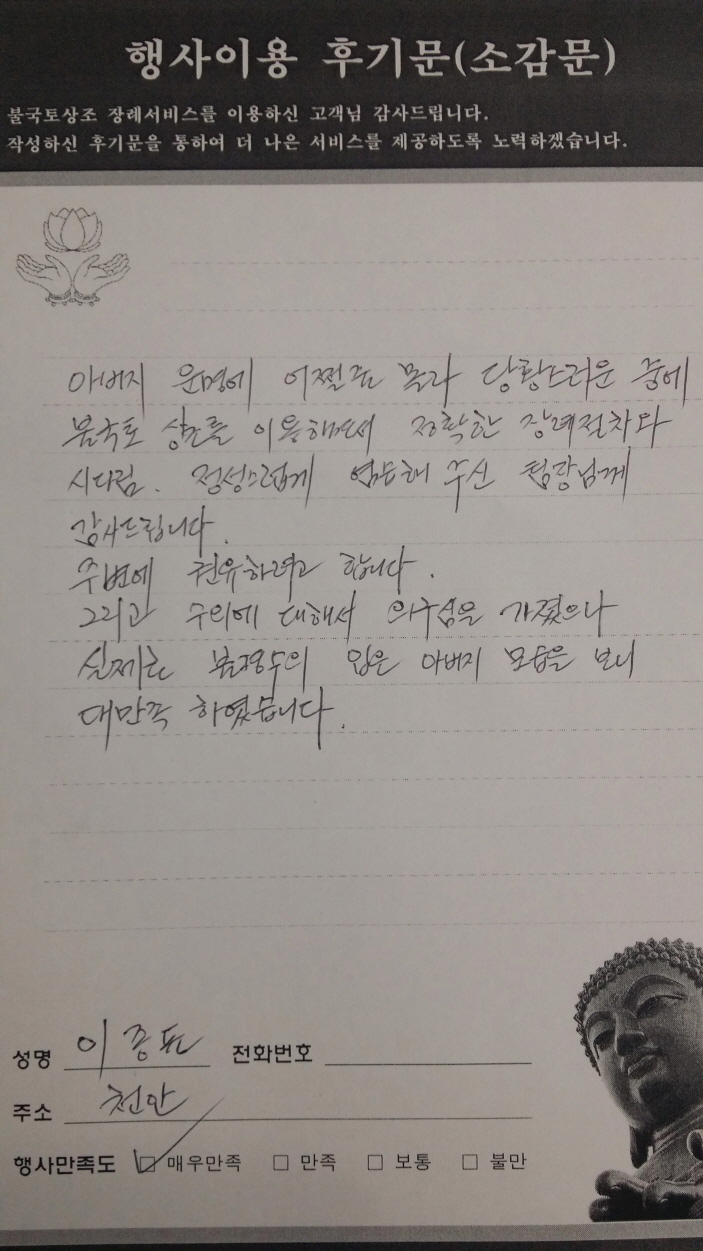 행사이용 후기문(소감문)
불국토상조 장례서비스를 이용하신 고객님 감사드립니다.
작성하신 후기문을 통하여 더 나은 서비스를 제공하도록 노력하겠습니다.
아버지 운명에 어쩔줄 몰라 당황스러운 중에
불국토 상조를 이용하면서 정확한 장례절차와
시다림. 정성스럽게 염습해 주신 팀장님께
감사드립니다.
주변에 권유하려고 합니다.
그리고 수의에 대해서 의구심을 가졌으나
실제로 불경수의 입은 아버지 모습을 보니
대만족 하였습니다.
성명 이종표 전화번호
주소 천안
행사만족도 ☑ 매우만족 □ 만족 □ 보통 □ 불만